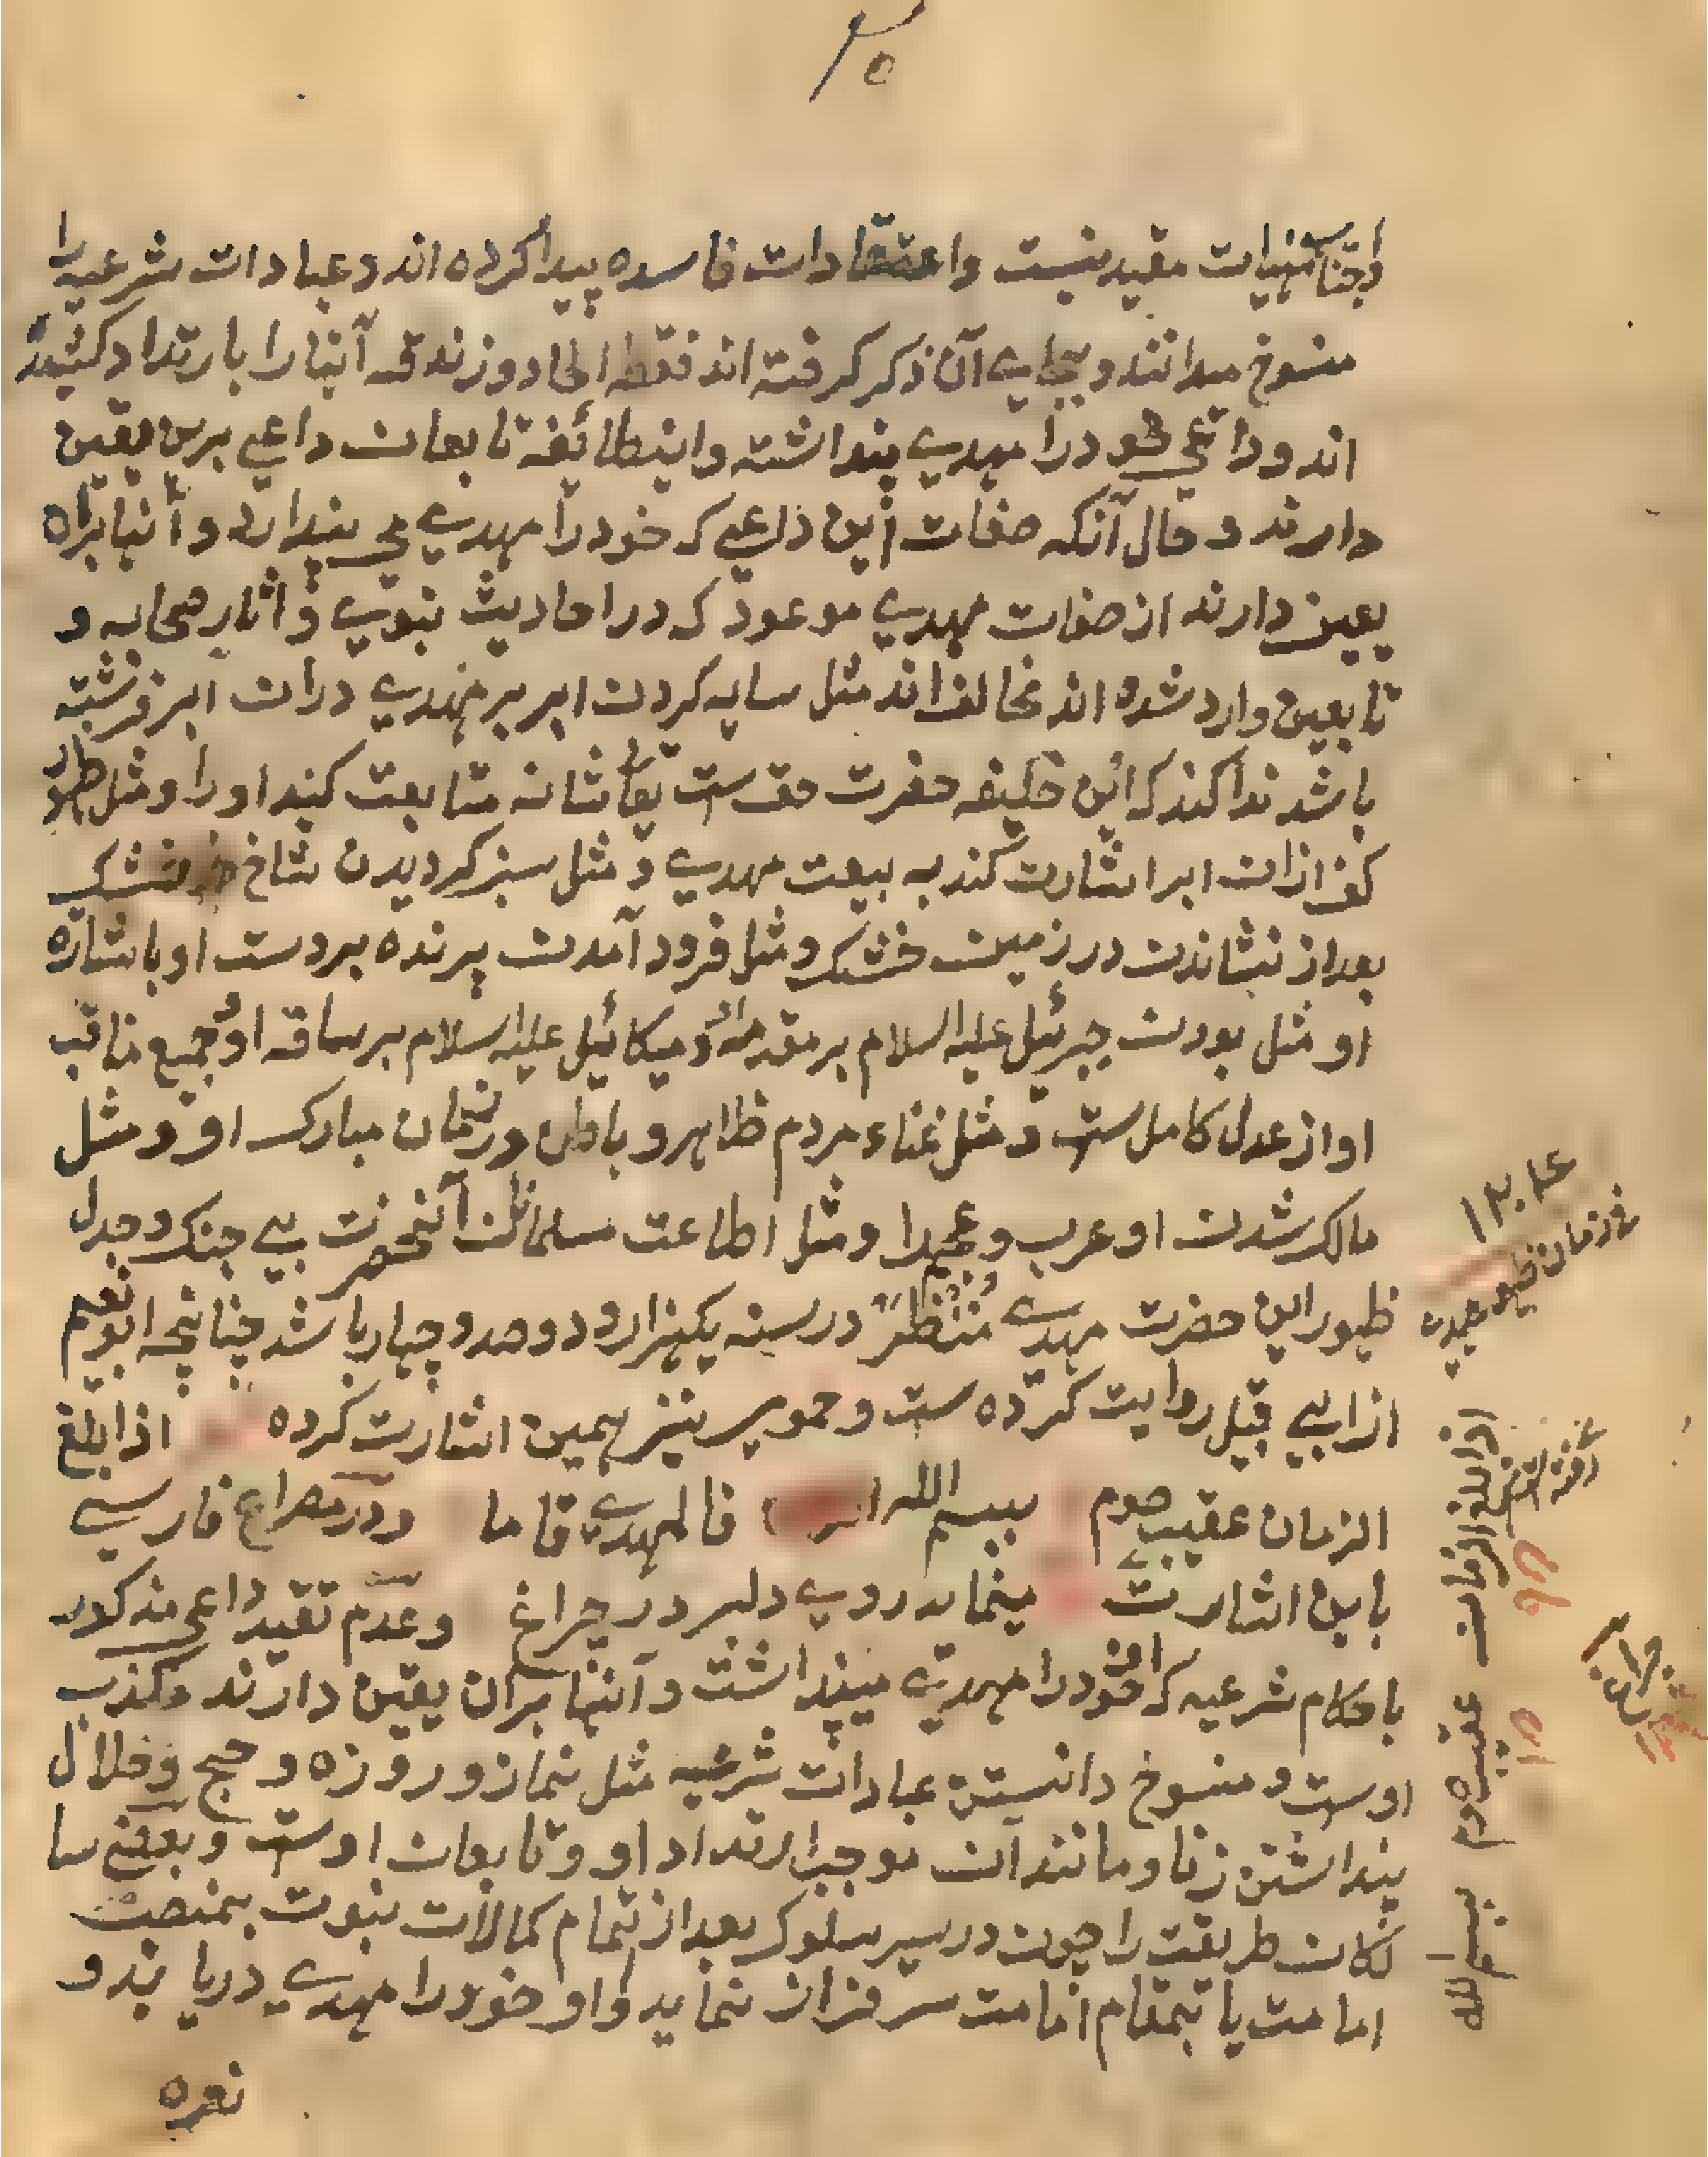 اجتناب منهیات مقید نیست و اعتقادات فاسده پیدا کرده اند و عبادات شرعیه را
منسوخ میدانند و بجاے آن ذکر گرفته اند فقط الحاد و زندقه آنها را بارتداد کشیده
اند و داعی خود را مهدے پنداشته و اینطائفه تابعان داعے برین یقین
دارند و حال آنکه صفات این داعے که خود را مهدے می پندارد و آنها براه
یقین دارند از صفات مهدے موعود که در احادیث نبوے و آثار صحابه و
تابعین وارد شده اند مخالف اند مثل سایه کردن ابر بر مهدے دران ابر فرشته
باشد ندا کند که این خلیفه حضرت حق ست تعالی شانه متابعت کنید او را و مثل ظهور
کف ازان ابر اشارت کند به بیعت مهدے و مثل سبز گردیدن شاخ خشک
بعد از نشاندن در زمین خشک و مثل فرود آمدن پرنده بر دست او باشاره
او مثل بودن جبرئیل علیه السلام بر مقدمه او و میکائیل علیه السلام بر ساقه او و جمیع مناقب
او از عدل کامل ست و مثل غناء مردم ظاهر و باطن در زمان مبارک او و مثل
مالک شدن او عرب و عجم را و مثل اطاعت مسلمانان آنحضرت بے جنگ و جدل
ظهور این حضرت مهدے مُنتَظَر در سنه یکهزار و دو صد و چهار باشد چنانچه ابو نعیم
از ابے قبیل روایت کرده ست و حموی نیز همین اشارت کرده اذا بلغ
الزمان عقیب صوم ببسم الله فالمهدے قاما و در مصراع فارسے
باین اشارت ست مینماید روے دلبر در چراغ و عدم تقید داعی مذکور
باحکام شرعیه که او خود را مهدے میپنداشت و آنها بران یقین دارند مکذب
اوست و منسوخ دانستن عبادات شرعیه مثل نماز و روزه و حج و حلال
پنداشتن زنا و مانند آن موجب ارتداد او و تابعان اوست و بعضے سا
لکان طریقت را چون در سیر سلوک بعد از تمام کمالات نبوت بمنصب
امامت یا بمقام امامت سرفراز نماید و او خود را مهدے دریابد و
نعره
۱۲۰۴
زمان ظهور مهدے
اذا بلغ الزمان عقیب صوم بسم الله